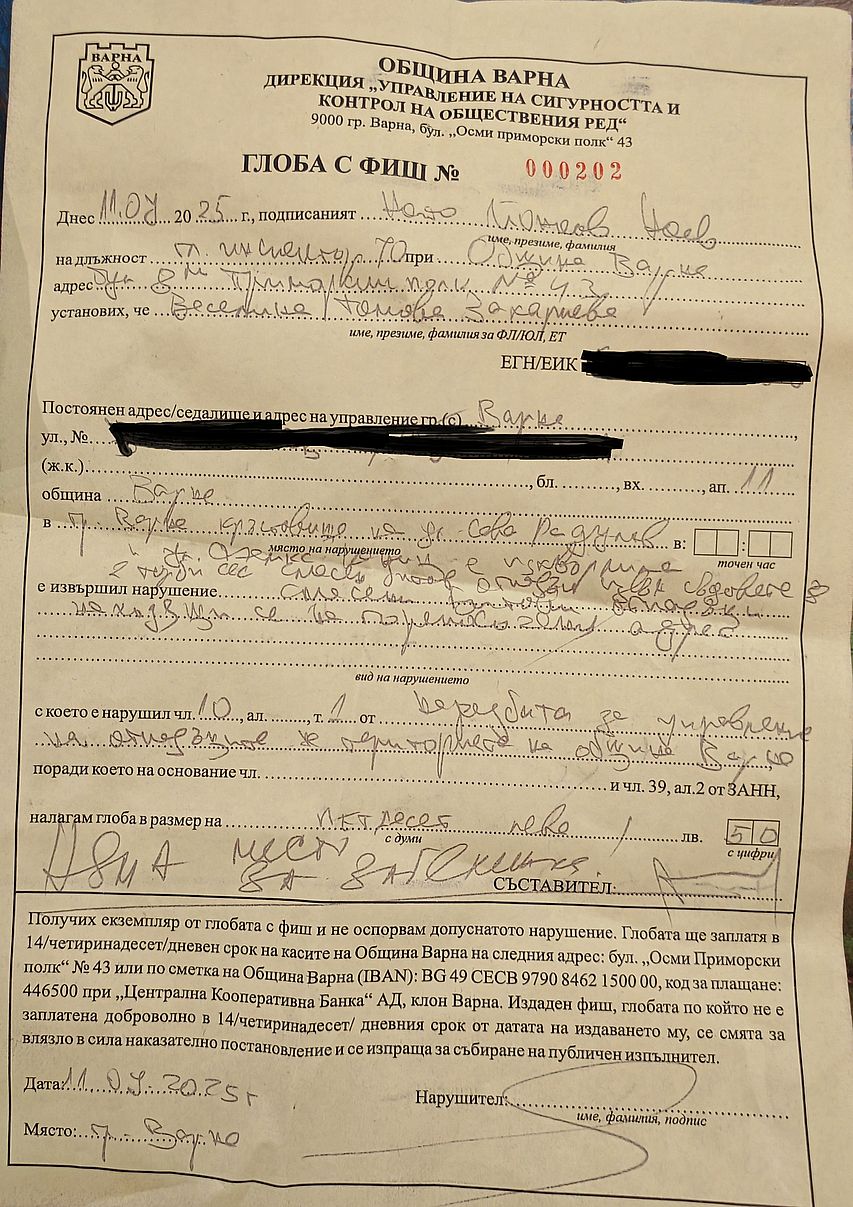 ВАРНА
ОБЩИНА ВАРНА
ДИРЕКЦИЯ „УПРАВЛЕНИЕ НА СИГУРНОСТТА И
КОНТРОЛ НА ОБЩЕСТВЕНИЯ РЕД“
9000 гр. Варна, бул. „Осми приморски полк“ 43
ГЛОБА С ФИШ № 000202
Днес 11.04 20 25 г., подписаният
име, презиме, фамилия
на длъжност гл. инспектор при Община Варна
адрес бул. 8ми Приморски полк № 43
установих, че Веселина Тонова Захариева
име, презиме, фамилия за ФЛ/ЮЛ, ЕТ
ЕГН/ЕИК
Постоянен адрес/седалище и адрес на управление гр.(с) Варна,
ул., №
(ж.к.), бл. , вх. , ап. 11
община Варна
в гр. Варна кръстовище на ул. Сава Радулов в: :
място на нарушението точен час
е извършил нарушение отпадъци
находящи се на адрес
вид на нарушението
с което е нарушил чл. 10, ал. , т. 1 от Наредбата за управление
на отпадъците на територията на община Варна
поради което на основание чл. и чл. 39, ал.2 от ЗАНН,
налагам глоба в размер на петдесет лева / лв. 50
с думи с цифри
НЯМА МЯСТО
СЪСТАВИТЕЛ:
Получих екземпляр от глобата с фиш и не оспорвам допуснатото нарушение. Глобата ще заплатя в
14/четиринадесет/дневен срок на касите на Община Варна на следния адрес: бул. „Осми Приморски
полк“ № 43 или по сметка на Община Варна (IBAN): BG 49 CECB 9790 8462 1500 00, код за плащане:
446500 при „Централна Кооперативна Банка“ АД, клон Варна. Издаден фиш, глобата по който не е
заплатена доброволно в 14/четиринадесет/ дневния срок от датата на издаването му, се смята за
влязло в сила наказателно постановление и се изпраща за събиране на публичен изпълнител.
Дата: 11.04.2025 г
Нарушител:
име, фамилия, подпис
Място: гр. Варна